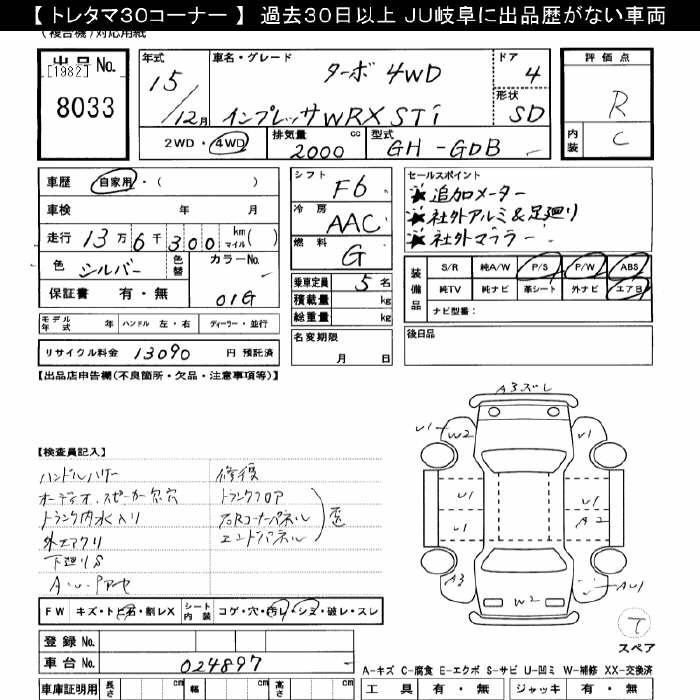 【 トレタマ30コーナー 】 過去30日以上 JU岐阜に出品歴がない車両
(複合機)対応用紙
出品 No.
[1982]
8033
年式
15/12月
車名・グレード
ターボ 4WD
インプレッサWRX STi
ドア
4
形状
SD
評価点
R
内装
C
2WD・4WD
排気量
2000 cc
型式
GH-GDB
車歴 自家用・( )
車検 年 月
走行 13万6千300 km マイル( )
色 シルバー 色替 カラーNo.
01G
保証書 有・無
シフト
F6
冷房
AAC
燃料
G
乗車定員 5名
積載量 kg
総重量 kg
セールスポイント
★追加メーター
★社外アルミ&足廻り
★社外マフラー
装備品
S/R 純A/W P/S P/W ABS
純TV 純ナビ 革シート 外ナビ エアB
ナビ型番:
モデル年式 年 ハンドル 左・右 ディーラー・並行
名変期限
月 日
後日品
リサイクル料金 13090 円 預託済
【出品店申告欄(不良箇所・欠品・注意事項等)】
【検査員記入】
オーディオ.スピーカー欠.穴
トランク内水入り
外エアクリ
下廻りS
修復
トランクフロア
エンドパネル
A3ズレ
U1
W2
U1
U1
U1
A2
A3
W2
AU1
T
スペア
FW キズ・トビ石・割レX シート内装 コゲ・穴・汚レ・シミ・破レ・スレ
登録 No.
車台 No. 024897
車庫証明用 長さ cm 幅 cm 高さ cm
A-キズ C-腐食 E-エクボ S-サビ U-凹ミ W-補修 XX-交換済
工具 有・無 ジャッキ 有・無